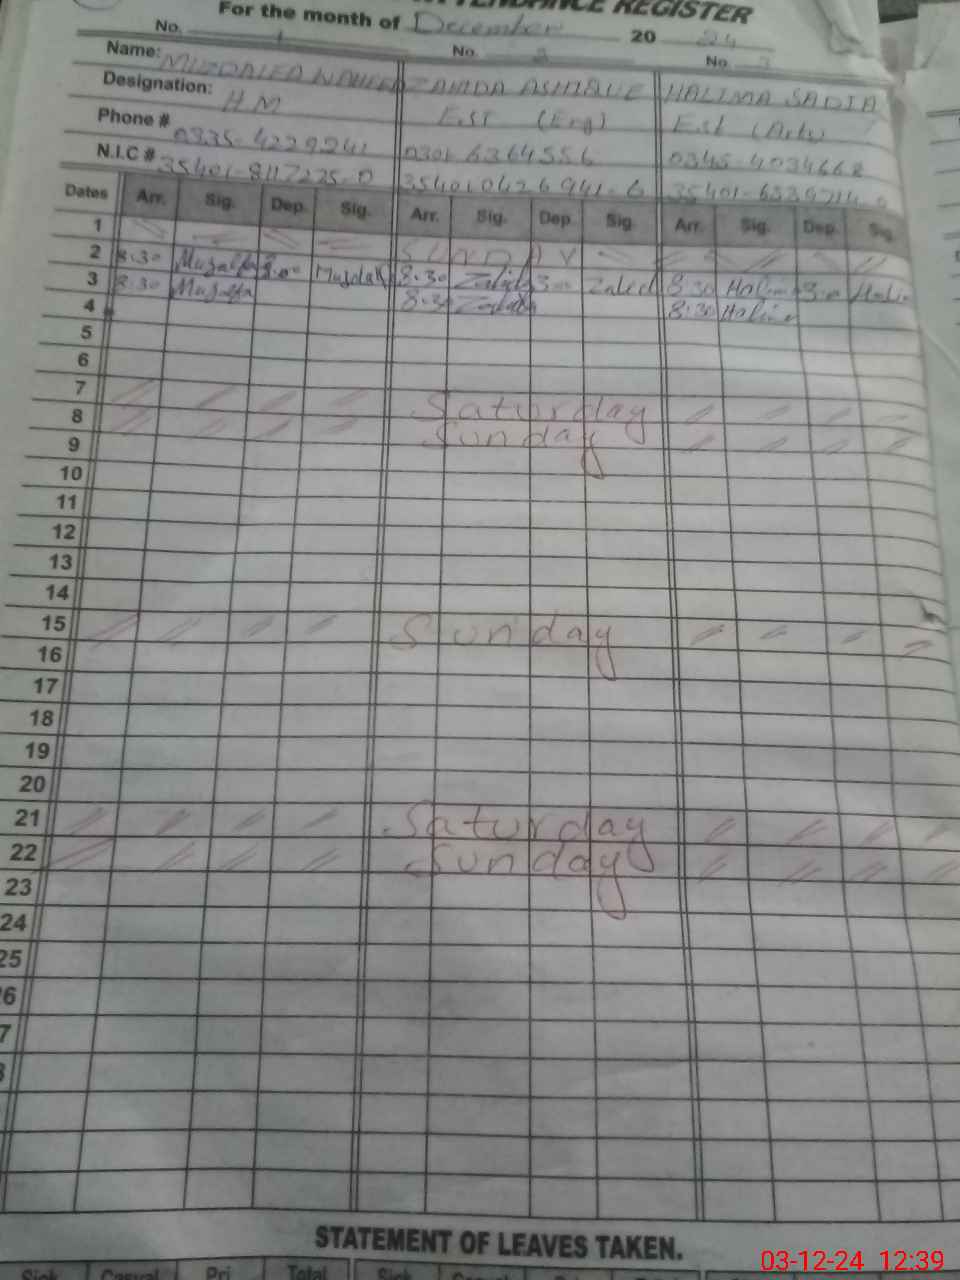 ATTENDANCE REGISTER
For the month of December 20 24
No. 1 No. 2 No. 3
Name: ZAHIDA ASHRAF HALIMA SADIA
Designation: H.M E.S.T (Eng) E.S.T (Arts)
Phone # 0335-4229241 0301-6364556 0345-4034668
N.I.C #
Dates Arr. Sig. Dep. Sig. Arr. Sig. Dep. Sig. Arr. Sig. Dep. Sig.
1 SUNDAY
2 8:30 3:00 8:30 Zahida 3:00 Zahid 8:30 Halima 3:00 Halima
3 8:30 8:30 Zahida 8:30 Halima
4
5
6
7 Saturday
8 Sunday
9
10
11
12
13
14
15 Sunday
16
17
18
19
20
21 Saturday
22 Sunday
23
24
25
6
7
STATEMENT OF LEAVES TAKEN.
Sick Casual Pri. Total Sick
03-12-24 12:39